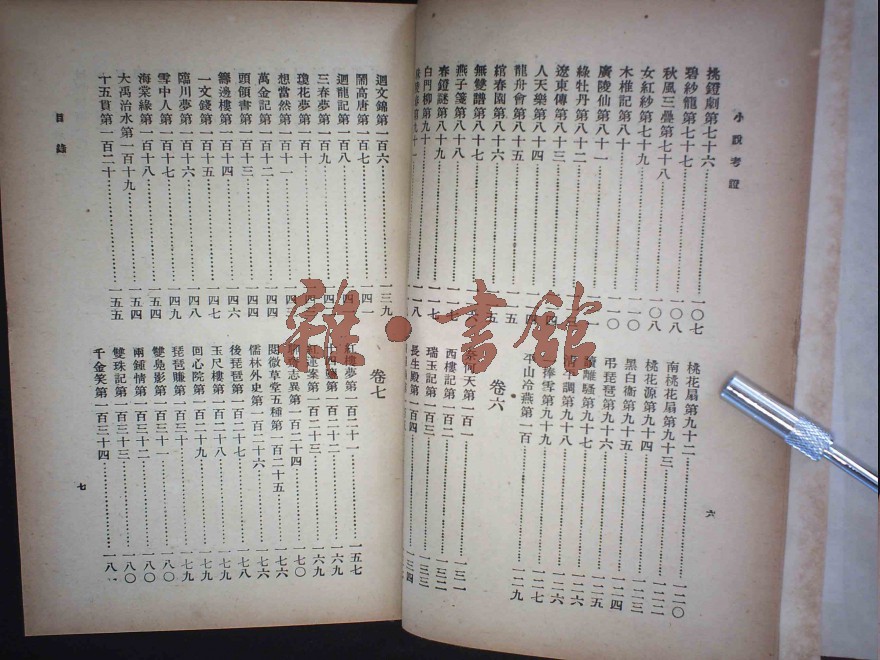 小說考證
挑鐙劇第七十六……一〇七
碧紗籠第七十七……一〇八
秋風三疊第七十八……一〇八
女紅紗第七十九……一一〇
木椎記第八十……一一〇
廣陵仙第八十一……
綠牡丹第八十二……
遼東傳第八十三……
人天樂第八十四……
龍舟會第八十五……
綰春園第八十六……
無雙譜第八十七……
燕子箋第八十八……
春鐙謎第八十九……
白門柳第九十……
第九十一……
桃花扇第九十二……一二〇
南桃花扇第九十三……一二二
桃花源第九十四……一二三
黑白衛第九十五……一二四
弔琵琶第九十六……一二五
續離騷第九十七……一二六
清平調第九十八……一二六
一捧雪第九十九……一二七
平山冷燕第一百……一二九
卷六
奈何天第一百一……一三一
西樓記第一百二……一三二
瑞玉記第一百三……一三三
長生殿第一百四……一三四
六
迴文錦第一百六……一三九
鬧高唐第一百七……一四一
迴龍記第一百八……
三春夢第一百九……
瓊花夢第一百十……
想當然第一百十一……
萬金記第一百十二……一四四
頭領書第一百十三……一四四
籌邊樓第一百十四……一四六
一文錢第一百十五……一四七
臨川夢第一百十六……一四八
雪中人第一百十七……一四九
海棠緣第一百十八……一五四
大禹治水第一百十九……一五五
十五貫第一百二十……一五五
卷七
紅樓夢第一百二十一……一五七
第一百二十二……一六九
紅蓮案第一百二十三……一六九
志異第一百二十四……一七〇
閱微草堂五種第一百二十五……一七六
儒林外史第一百二十六……一七六
後琵琶第一百二十七……一七八
玉尺樓第一百二十八……一七九
回心院第一百二十九……一七九
琵琶賺第一百三十……一七九
雙鳧影第一百三十一……一八〇
兩鍾情第一百三十二……一八〇
雙珠記第一百三十三……一八〇
千金笑第一百三十四……一八一
目錄
七
雜·書館